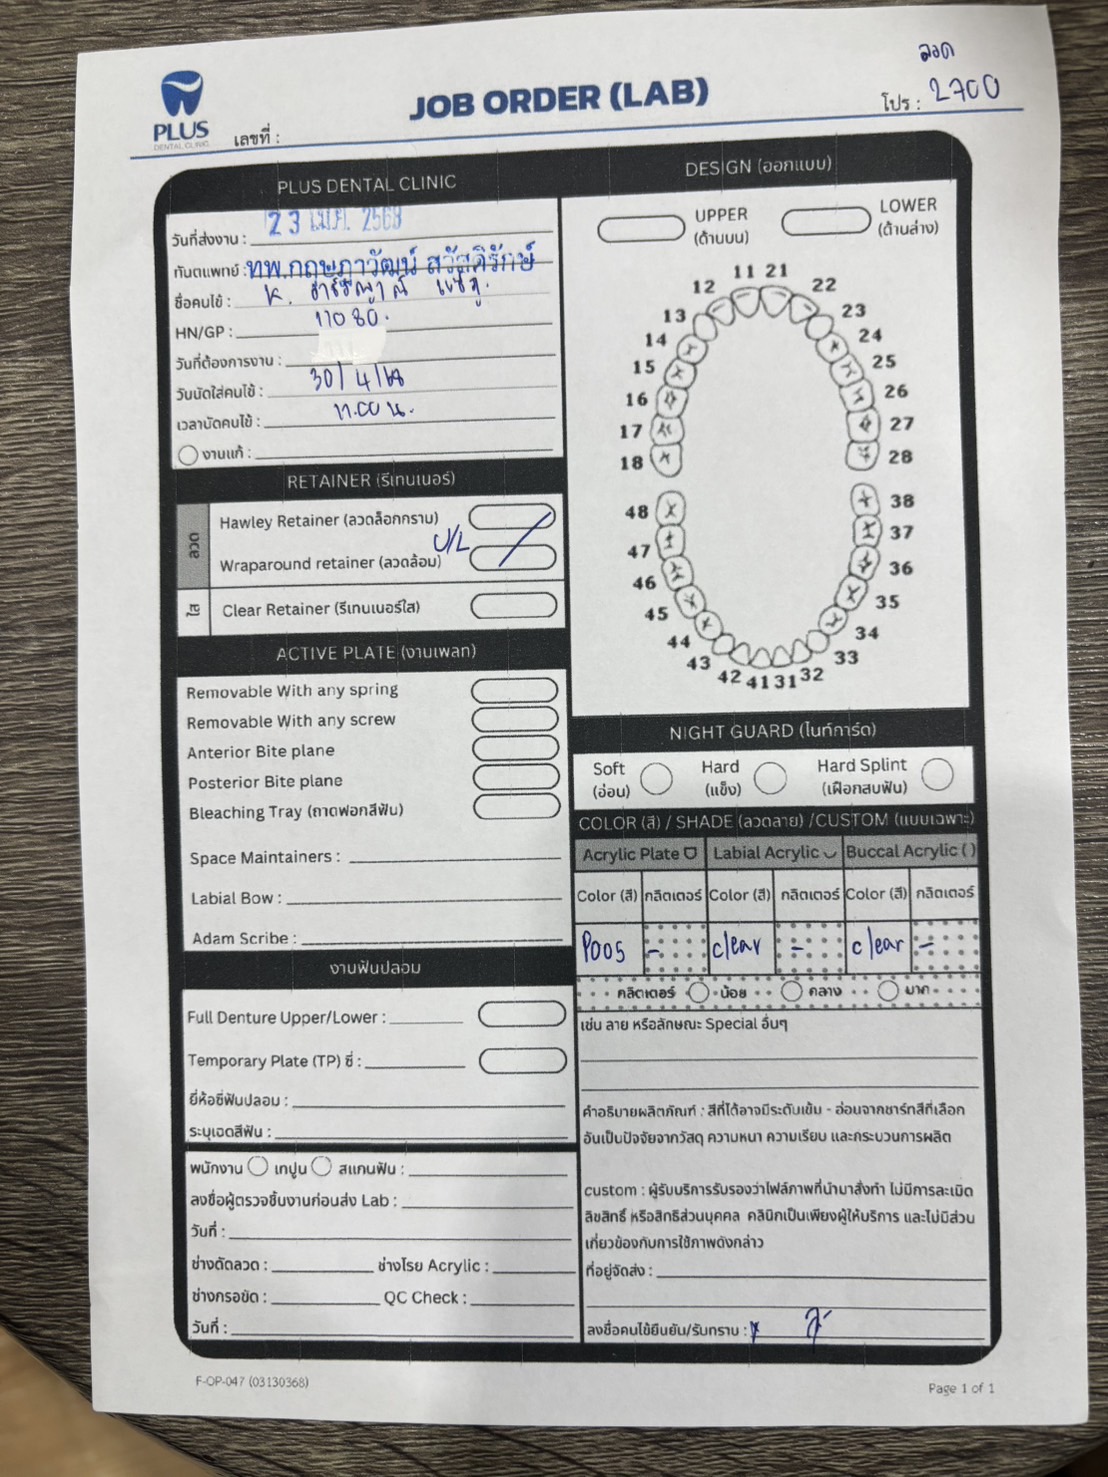 ลวด
JOB ORDER (LAB)
โปร : 2700
PLUS
DENTAL CLINIC
เลขที่ :
PLUS DENTAL CLINIC
วันที่ส่งงาน : 23 เม.ย. 2568
ทันตแพทย์ : ทพ.กฤษภาวัฒน์ สวัสดิรักษ์
ชื่อคนไข้ : K.
HN/GP : 11080.
วันที่ต้องการงาน :
วันนัดใส่คนไข้ : 30/4/68
เวลานัดคนไข้ : 11.00 น.
งานแก้ :
RETAINER (รีเทนเนอร์)
ลวด
Hawley Retainer (ลวดล็อกกราม)
U/L
Wraparound retainer (ลวดล้อม)
ใส
Clear Retainer (รีเทนเนอร์ใส)
ACTIVE PLATE (งานเพลท)
Removable With any spring
Removable With any screw
Anterior Bite plane
Posterior Bite plane
Bleaching Tray (ถาดฟอกสีฟัน)
Space Maintainers :
Labial Bow :
Adam Scribe :
งานฟันปลอม
Full Denture Upper/Lower :
Temporary Plate (TP) ซี่ :
ยี่ห้อซี่ฟันปลอม :
ระบุเฉดสีฟัน :
พนักงาน เทปูน สแกนฟัน :
ลงชื่อผู้ตรวจชิ้นงานก่อนส่ง Lab :
วันที่ :
ช่างดัดลวด : ช่างโรย Acrylic :
ช่างกรอขัด : QC Check :
วันที่ :
DESIGN (ออกแบบ)
UPPER
(ด้านบน)
LOWER
(ด้านล่าง)
11 21
12 22
13 23
14 24
15 25
16 26
17 27
18 28
48 38
47 37
46 36
45 35
44 34
43 33
42 41 31 32
NIGHT GUARD (ไนท์การ์ด)
Soft
(อ่อน)
Hard
(แข็ง)
Hard Splint
(เฝือกสบฟัน)
COLOR (สี) / SHADE (ลวดลาย) /CUSTOM (แบบเฉพาะ)
Acrylic Plate Labial Acrylic Buccal Acrylic ( )
Color (สี) กลิตเตอร์ Color (สี) กลิตเตอร์ Color (สี) กลิตเตอร์
P005 - clear - clear -
กลิตเตอร์ น้อย กลาง มาก
เช่น ลาย หรือลักษณะ Special อื่นๆ
คำอธิบายผลิตภัณฑ์ : สีที่ได้อาจมีระดับเข้ม - อ่อนจากชาร์ทสีที่เลือก
อันเป็นปัจจัยจากวัสดุ ความหนา ความเรียบ และกระบวนการผลิต
custom : ผู้รับบริการรับรองว่าไฟล์ภาพที่นำมาสั่งทำ ไม่มีการละเมิด
ลิขสิทธิ์ หรือสิทธิส่วนบุคคล คลินิกเป็นเพียงผู้ให้บริการ และไม่มีส่วน
เกี่ยวข้องกับการใช้ภาพดังกล่าว
ที่อยู่จัดส่ง :
ลงชื่อคนไข้ยืนยัน/รับทราบ :
F-OP-047 (03130368)
Page 1 of 1